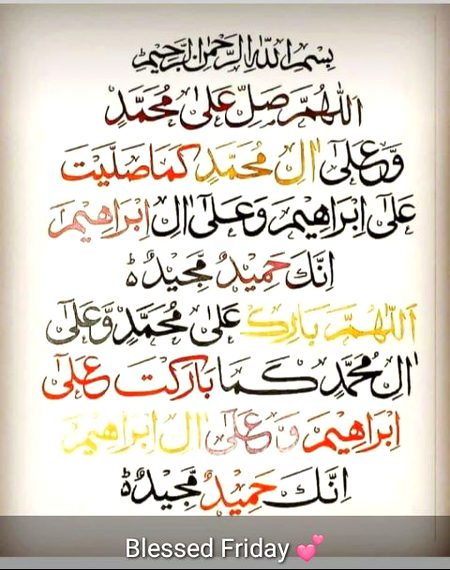 بِسْمِ اللهِ الرَّحْمٰنِ الرَّحِيْمِ
اَللّٰهُمَّ صَلِّ عَلٰى مُحَمَّدٍ
وَّعَلٰٓى اٰلِ مُحَمَّدٍ كَمَا صَلَّيْتَ
عَلٰٓى اِبْرَاهِيْمَ وَعَلٰٓى اٰلِ اِبْرَاهِيْمَ
اِنَّكَ حَمِيْدٌ مَّجِيْدٌ ه
اَللّٰهُمَّ بَارِكْ عَلٰى مُحَمَّدٍ وَّعَلٰٓى
اٰلِ مُحَمَّدٍ كَمَا بَارَكْتَ عَلٰٓى
اِبْرَاهِيْمَ وَعَلٰٓى اٰلِ اِبْرَاهِيْمَ
اِنَّكَ حَمِيْدٌ مَّجِيْدٌ ه
Blessed Friday 💕